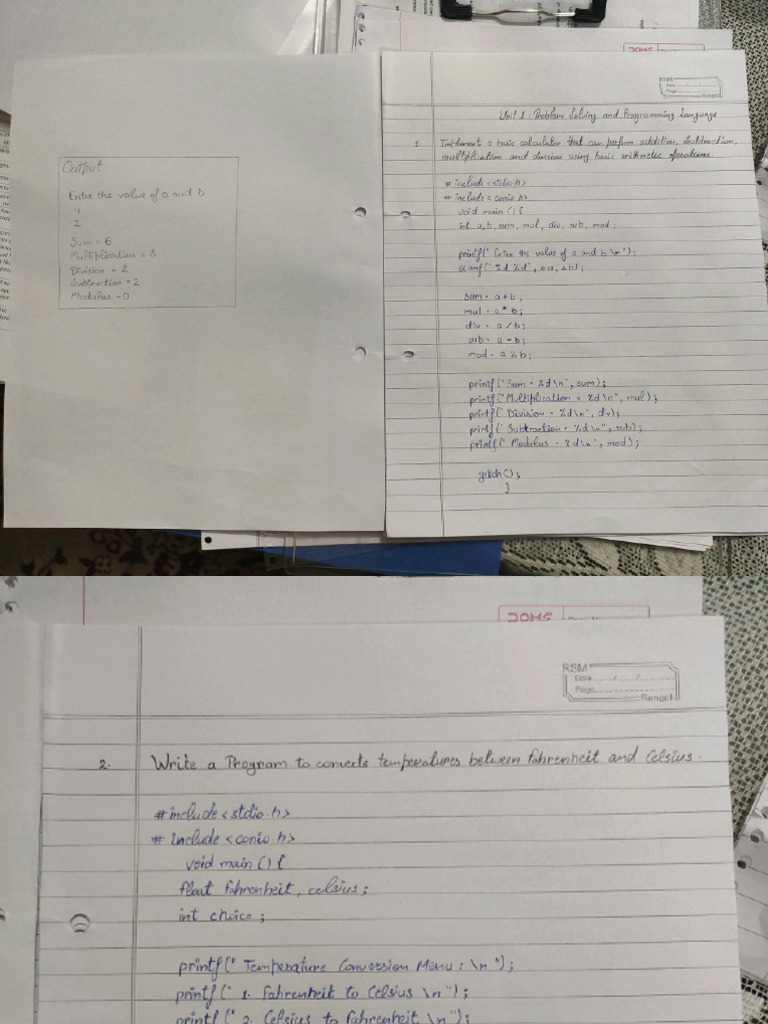 Output
Enter the value of a and b
4
2
Sum = 6
Multiplication = 8
Division = 2
Subtraction = 2
Modulus = 0
RSM
Date
Page
Rangel
Unit 1 : Problem Solving and Programming Language
1. Implement a basic calculator that can perform addition, subtraction,
multiplication and division using basic arithmetic operations.
# include <stdio.h>
# include <conio.h>
void main () {
int a, b, sum, mul, div, sub, mod ;
printf(" Enter the value of a and b \n");
scanf(" %d %d", &a, &b);
sum = a + b ;
mul = a * b ;
div = a / b ;
sub = a - b ;
mod = a % b ;
printf("Sum = %d \n", sum);
printf("Multiplication = %d \n", mul);
printf(" Division = %d\n", div);
printf(" Subtraction = %d \n", sub);
printf(" Modulus = %d \n", mod);
getch();
}
RSM
Date
Page
Rangel
2. Write a Program to converts temperatures between fahrenheit and Celsius.
# include <stdio.h>
# include <conio.h>
void main () {
float fahrenheit, celsius ;
int choice ;
printf(" Temperature Conversion Menu : \n ");
printf(" 1. fahrenheit to Celsius \n");
printf(" 2. Celsius to fahrenheit \n");